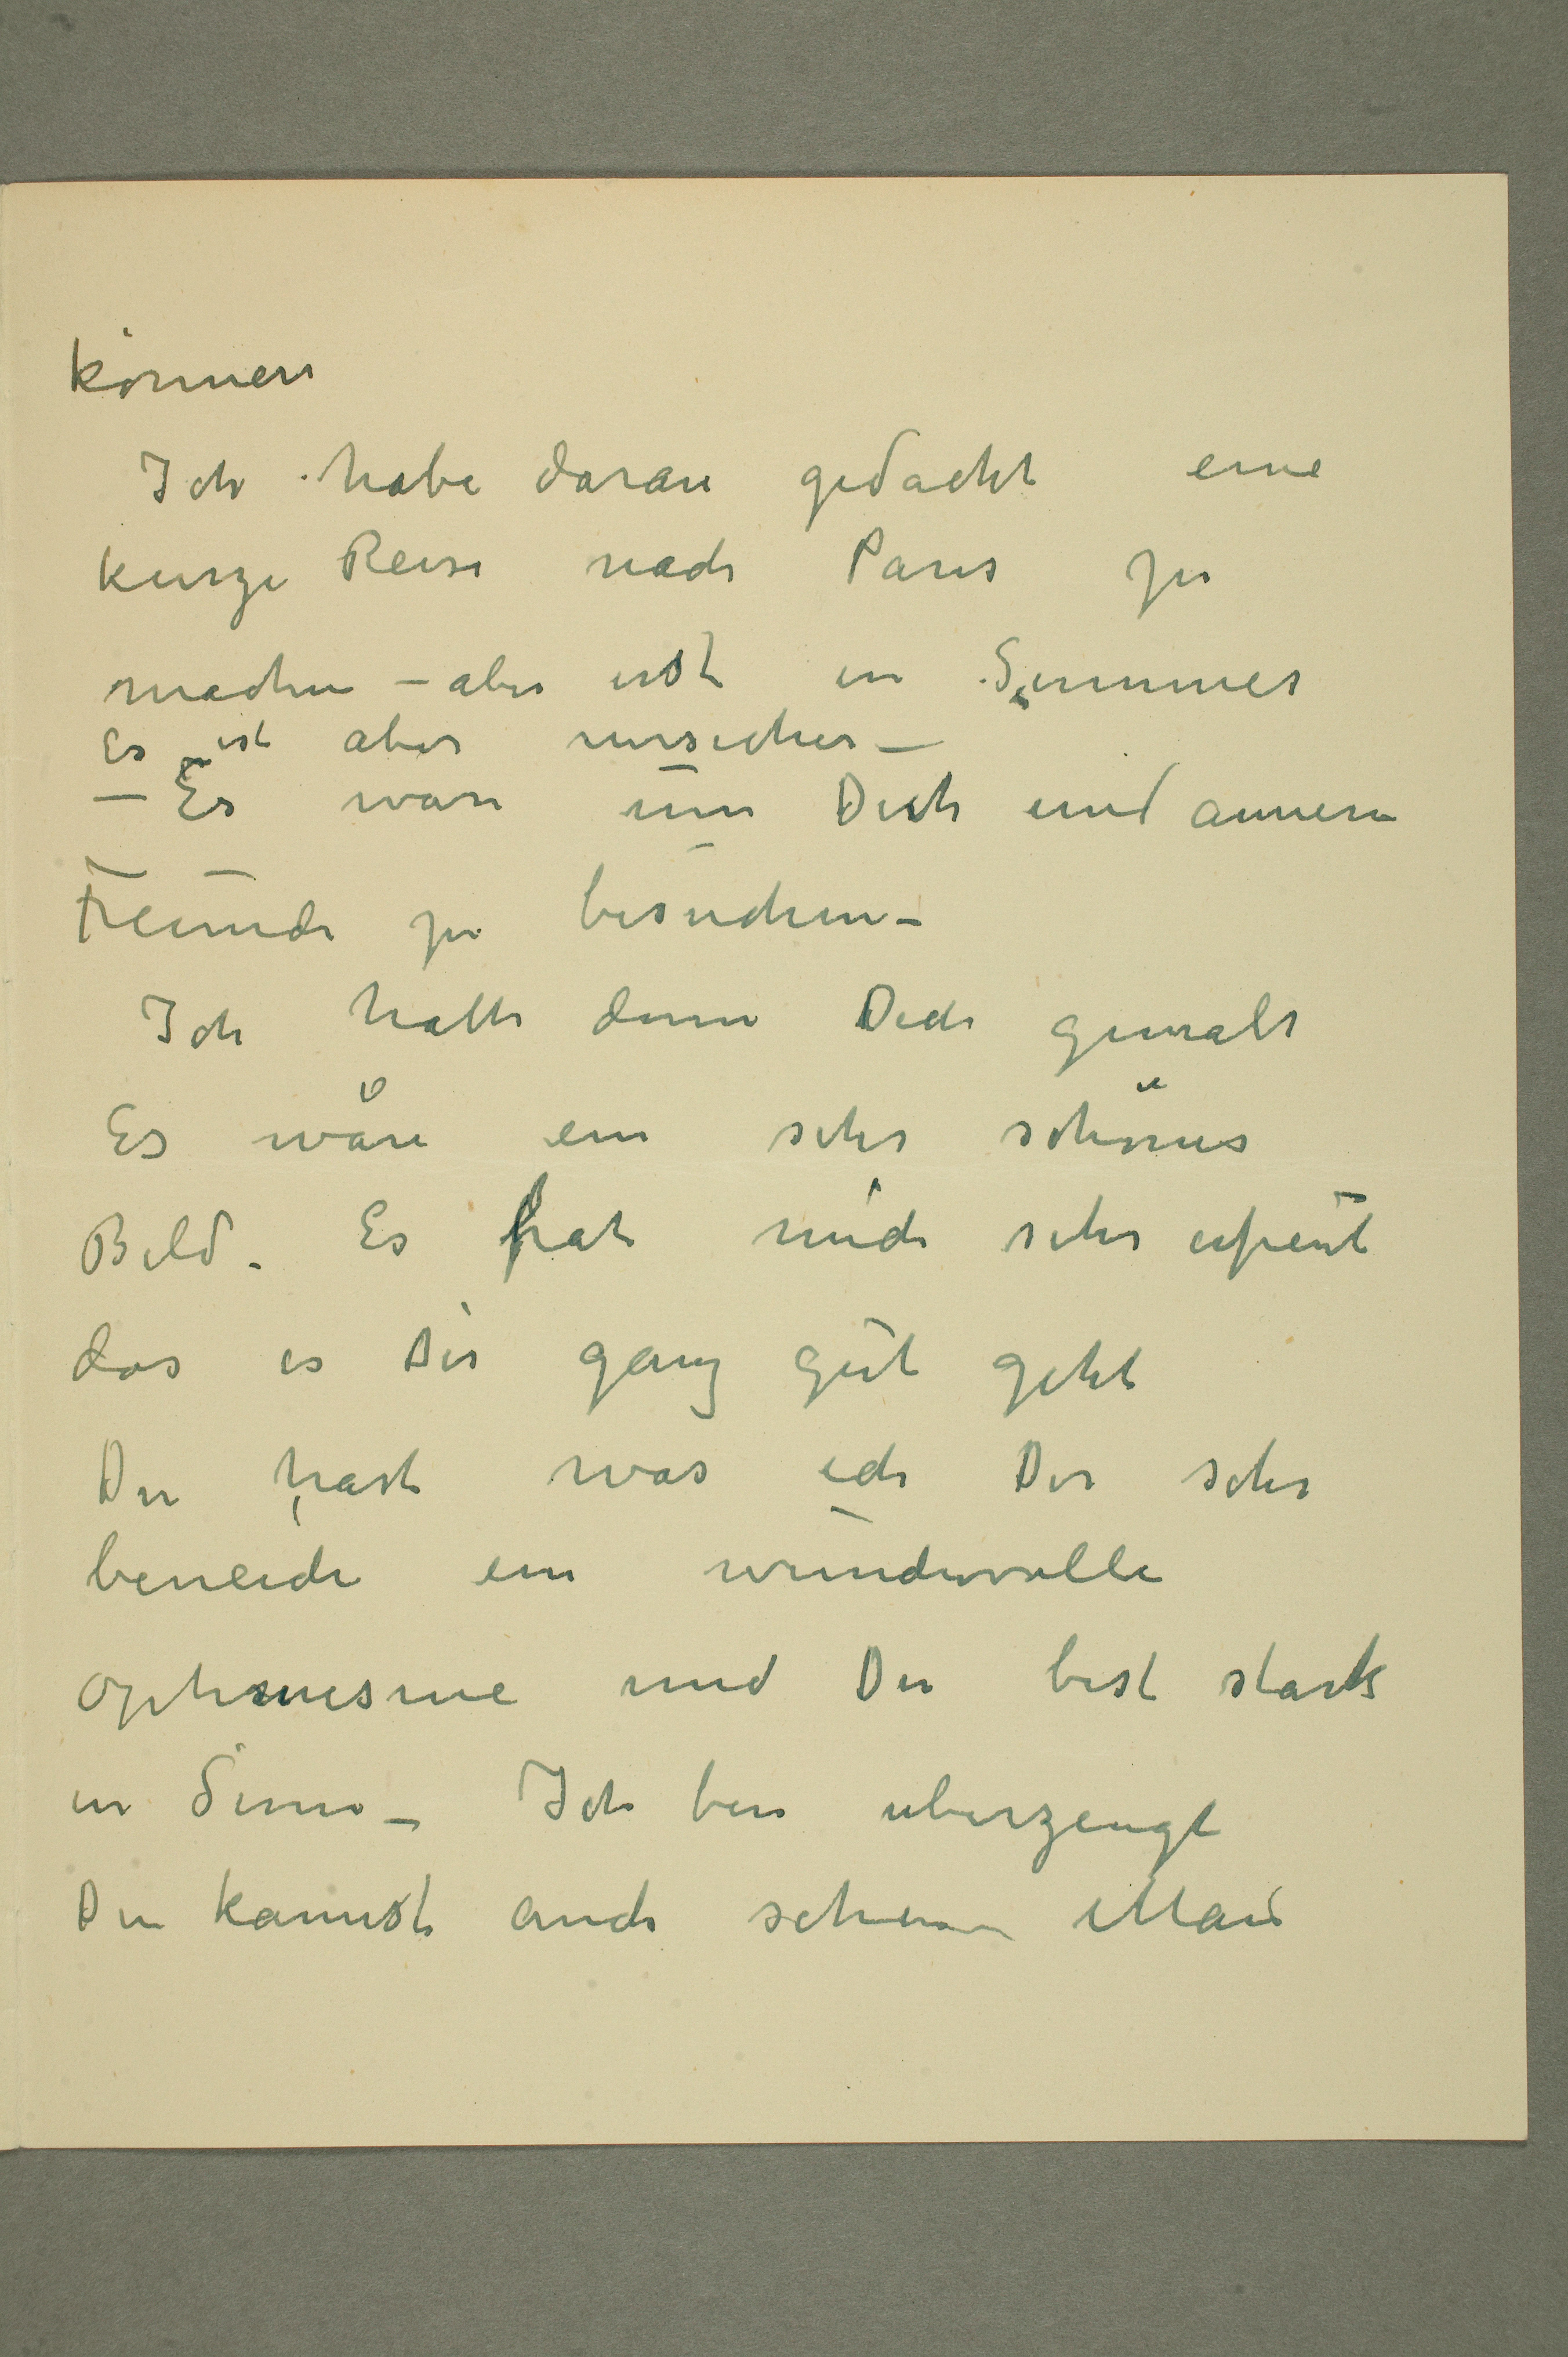 können
Ich habe daran gedacht eine
kurze Reise nach Paris zu
machen – aber erst in Sommer
Es ist aber unsicher –
– Es wäre um Dich und annern
Freunde zu besuchen –
Ich hatte denn Dich gemalt
Es wäre ein sehr schönes
Bild. Es hat mich sehr erfreut
das es Dir ganz gut geht
Du hast was ich Dir sehr
beneide ein wundervolle
optimisme und Du bist stark
in Sinn – Ich bin uberzeugt
Du kannst auch